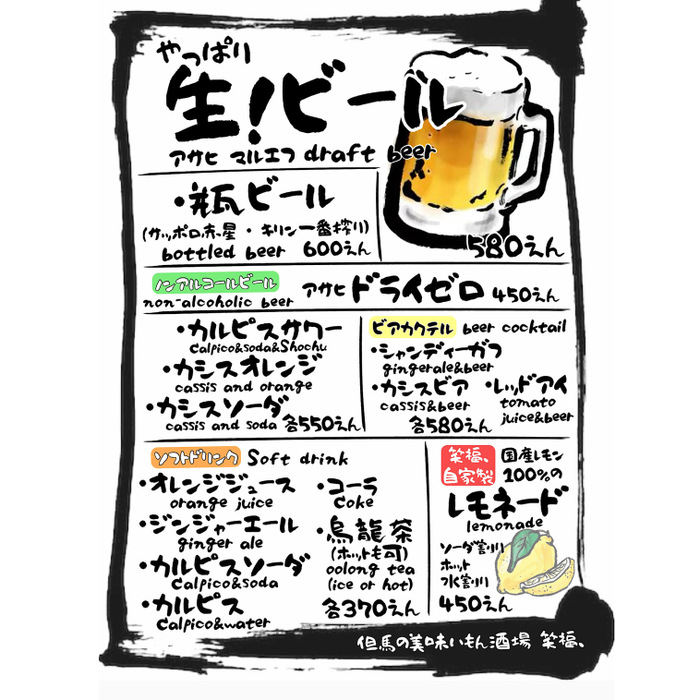 やっぱり
生!ビール
アサヒ マルエフ draft beer
580えん
・瓶ビール
(サッポロ赤星・キリン一番搾り)
bottled beer 600えん
ノンアルコールビール
non-alcoholic beer
アサヒ ドライゼロ 450えん
・カルピスサワー
Calpico&soda&Shochu
・カシスオレンジ
cassis and orange
・カシスソーダ
cassis and soda 各550えん
ビアカクテル beer cocktail
・シャンディーガフ
gingerale&beer
・カシスビア
cassis&beer
・レッドアイ
tomato
juice&beer
各580えん
ソフトドリンク Soft drink
・オレンジジュース
orange juice
・ジンジャーエール
ginger ale
・カルピスソーダ
Calpico&soda
・カルピス
Calpico&water
・コーラ
Coke
・烏龍茶
(ホットも可)
oolong tea
(ice or hot)
各370えん
笑福、
自家製
国産レモン
100%の
レモネード
lemonade
ソーダ割り
ホット
水割り
450えん
但馬の美味いもん酒場 笑福、